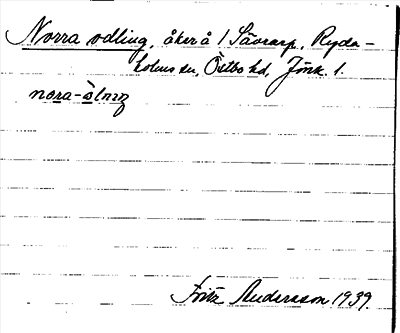 Norra odling, åker å 1 Sävrarp, Ryda-
holms sn, Östbo hd, Jönk. l.
nora-òlnıŋ
Fritz Andersson 1939.